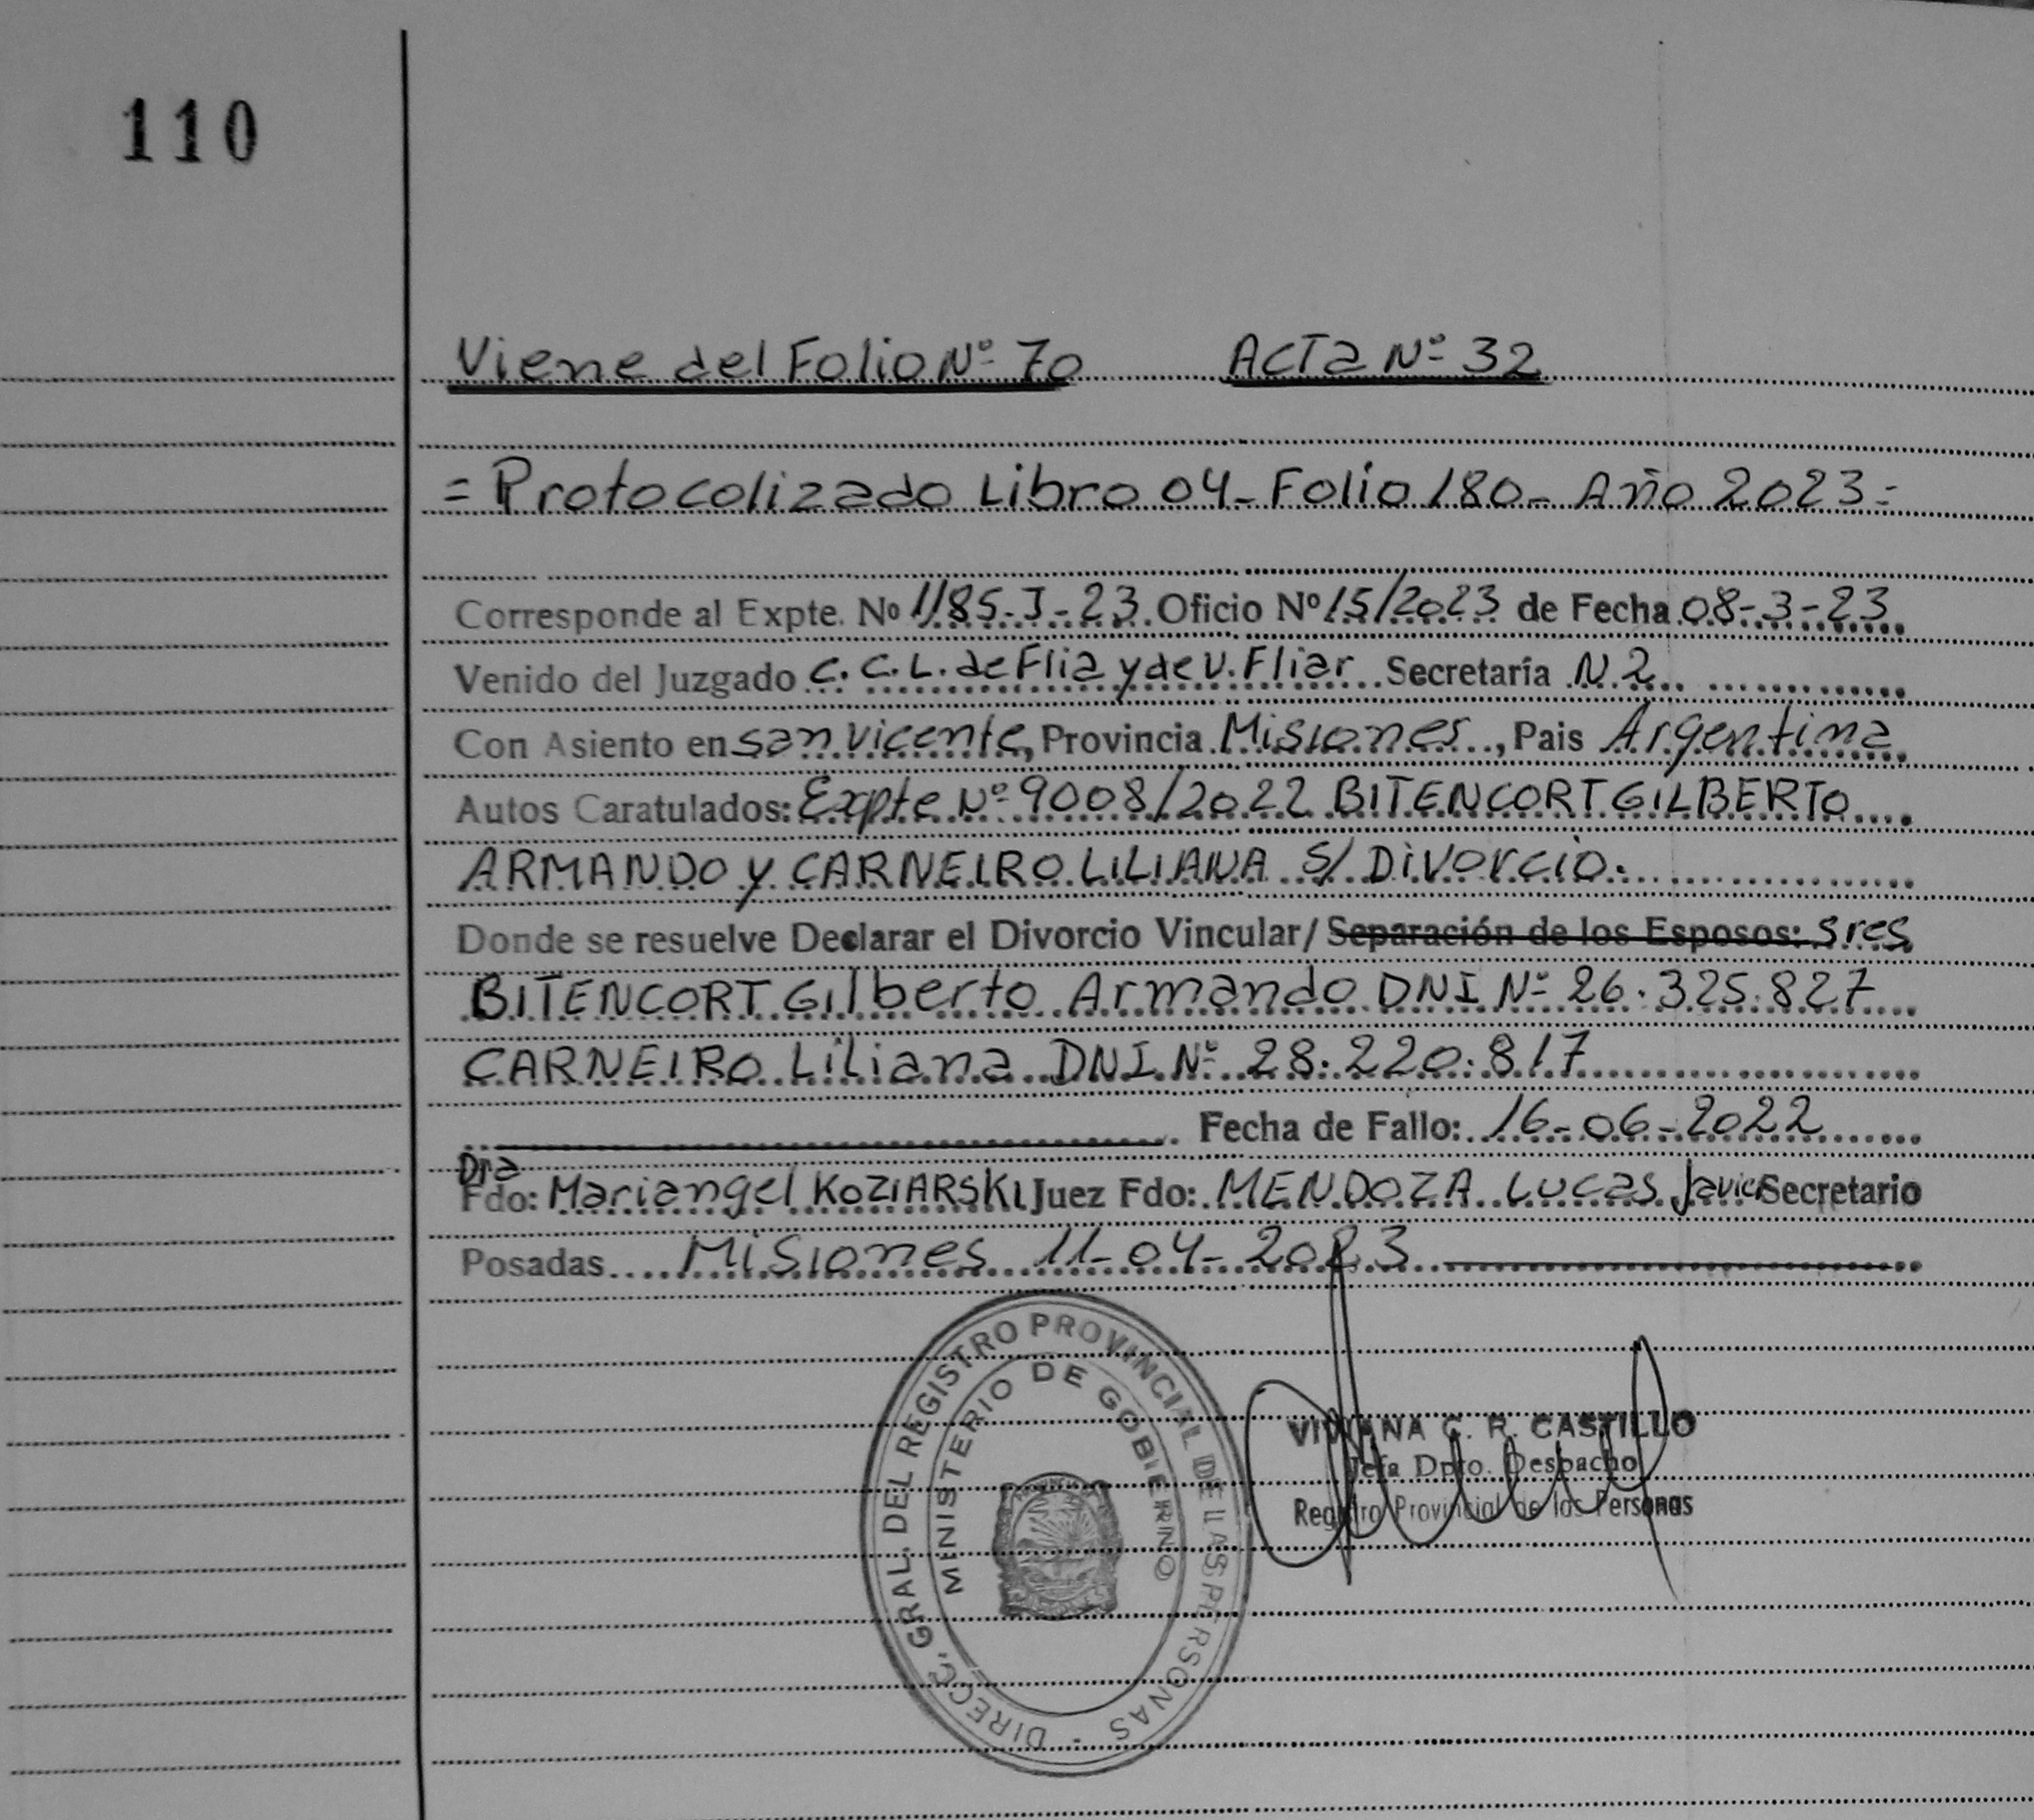 110
Viene del Folio Nº 70 Acta Nº 32
= Protocolizado Libro 04- Folio 180- Año 2023=
Corresponde al Expte. Nº 1185-J-23 Oficio Nº 15/2023 de Fecha 08-3-23
Venido del Juzgado C. C. L. de Flia y de V. Fliar Secretaría N.2
Con Asiento en San Vicente, Provincia Misiones, Pais Argentina
Autos Caratulados: Expte Nº 9008/2022 BITENCORT GILBERTO
ARMANDO y CARNEIRO LILIANA S/ Divorcio.
Donde se resuelve Declarar el Divorcio Vincular/ Separación de los Esposos: Sres
BITENCORT Gilberto Armando DNI Nº 26.325.827
CARNEIRO Liliana DNI Nº 28.220.817
Fecha de Fallo: 16-06-2022
Dra
Fdo: Mariangel KOZIARSKI Juez Fdo: MENDOZA Lucas Javier Secretario
Posadas Misiones 11-04-2023
DIRECC. GRAL. DEL REGISTRO PROVINCIAL DE LAS PERSONAS -
MINISTERIO DE GOBIERNO
VIVIANA C. R. CASTILLO
Jefa Dpto. Despacho
Registro Provincial de las Personas